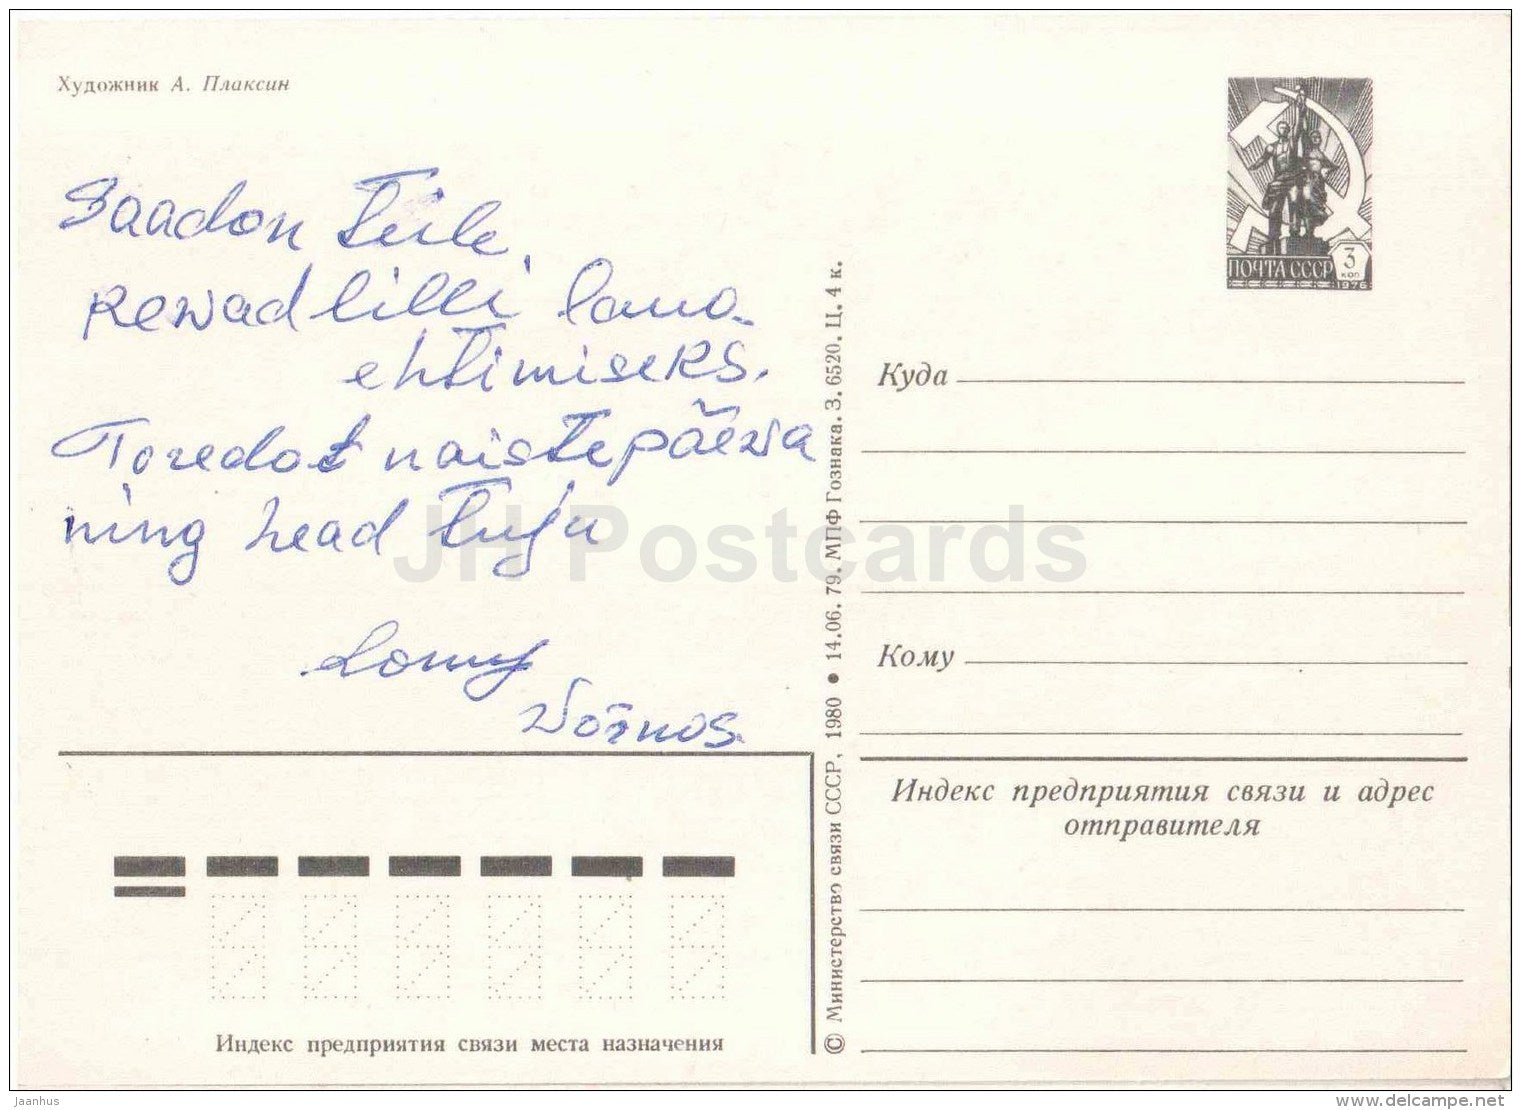 Художник А. Плаксин
Saadan Teile
kewad lilli laua-
ehtimiseks.
Toredat naistepäewa
ning head tuju
ПОЧТА СССР 3 КОП 1976
Куда
Кому
Индекс предприятия связи и адрес
отправителя
© Министерство связи СССР, 1980 • 14.06.79. МПФ Гознака. З. 6520. Ц. 4 к.
Индекс предприятия связи места назначения
JH Postcards
Jaanhus
www.delcampe.net